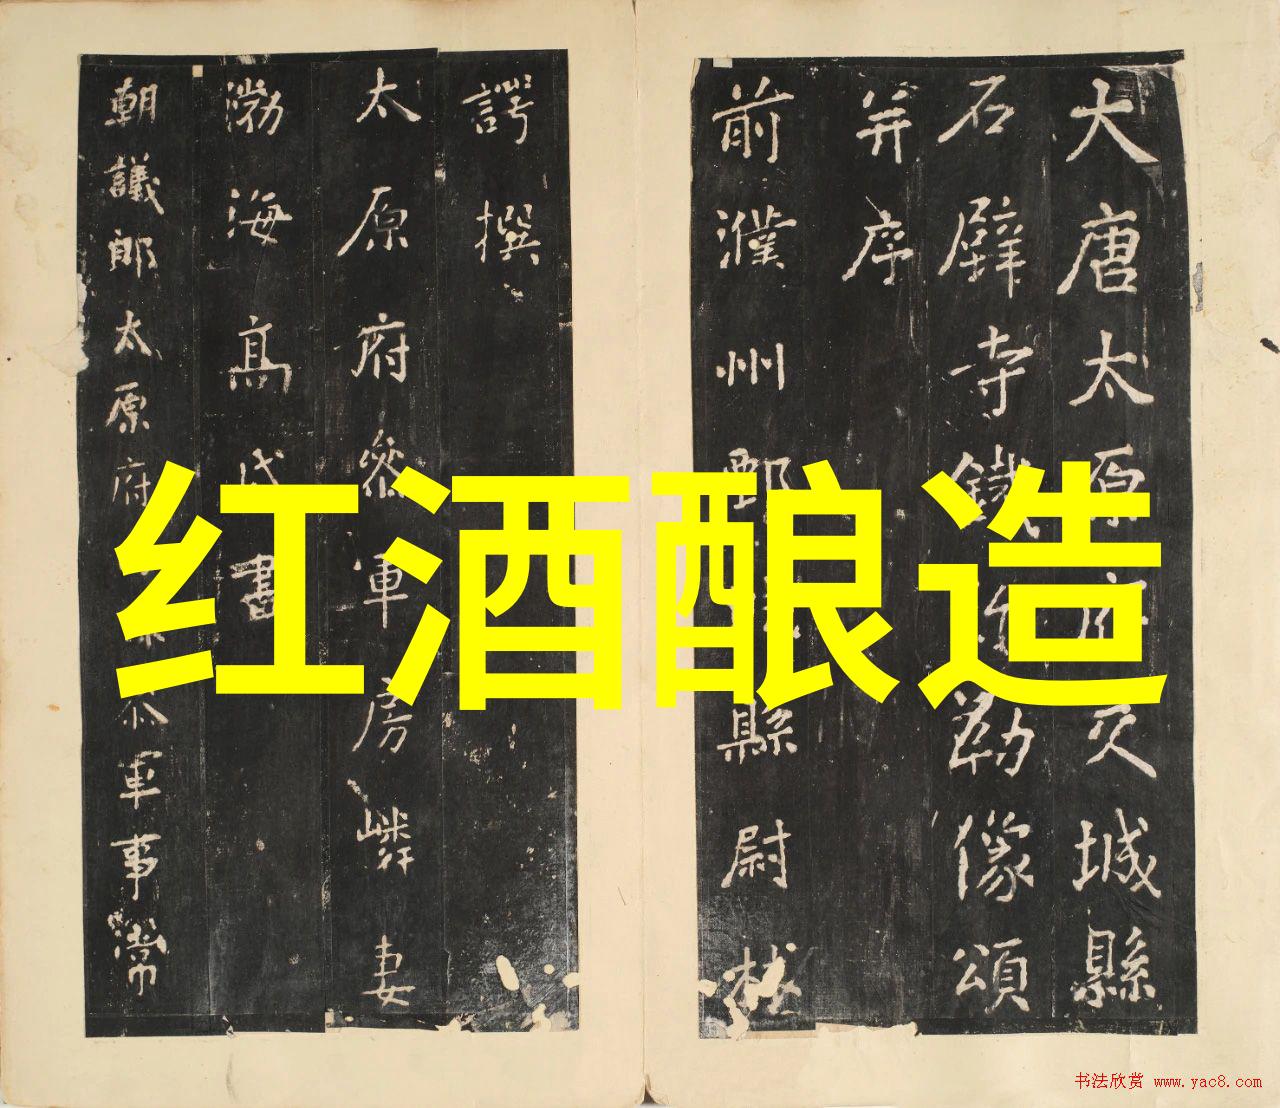 大唐太原府交城縣
石壁寺鐵彌勒像頌
并序
前濮州鄄縣尉林
諤撰
太原府參軍房嶙妻
渤海高氏書
朝議郎太原府參軍事常
红酒酿造
书法欣赏 www.yac8.com